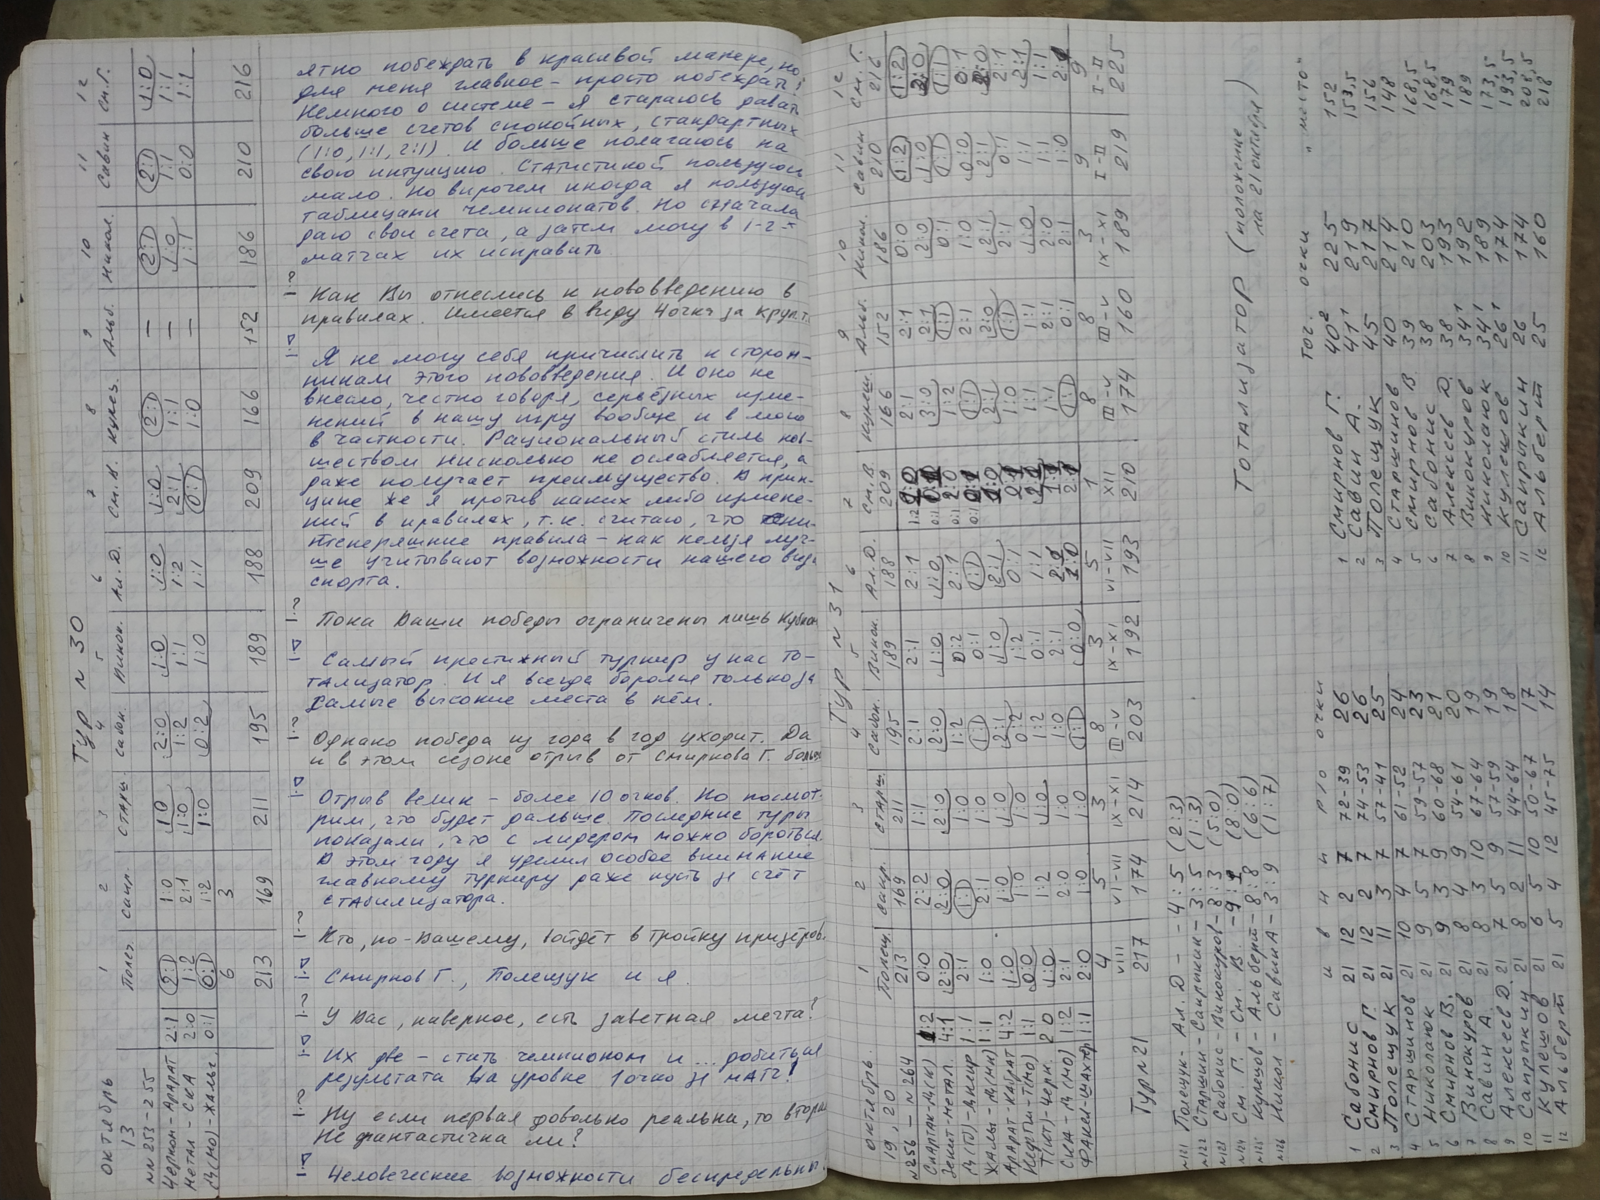 Тур № 30
октябрь
13
№№ 253-255
1 2 3 4 5 6 7 8 9 10 11 12
Полещ. Сапр. Старш. Сабон. Винок. Ал.Д. См.В. Кулеш. Альб. Никол. Савин См.Г.
Черном-Арарат 2:1 2:1 1:0 1:0 2:0 1:0 1:0 1:0 2:1 — 2:1 2:1 1:0
Метал-СКА 2:0 1:2 2:1 1:0 1:2 1:1 1:2 2:1 1:1 — 1:0 1:1 1:1
Д(Мо)-Жальг. 0:1 0:1 1:2 1:0 0:2 1:0 1:1 0:1 1:0 — 1:1 0:0 1:1
6 3
213 169 211 195 189 188 209 166 152 186 210 216
ятно побеждать в красивой манере, но
для меня главное – просто побеждать!
Немного о системе – я стараюсь давать
больше счетов спокойных, стандартных
(1:0, 1:1, 2:1). И больше полагаюсь на
свою интуицию. Статистикой пользуюсь
мало. Но впрочем иногда я пользуюсь
таблицами чемпионатов. Но сначала
даю свои счета, а затем могу в 1-2-х
матчах их исправить.
Как Вы отнеслись к нововведению в
правилах. Имеется в виду 4 очка за кругл.
Я не могу себя причислить к сторон-
никам этого нововведения. И оно не
внесло, честно говоря, серьёзных изме-
нений в нашу игру вообще и в мою
в частности. Рациональный стиль нов-
шеством нисколько не ослабляется, а
даже получает преимущество. В прин-
ципе же я против каких либо измене-
ний в правилах, т.к. считаю, что
теперешние правила – как нельзя луч-
ше учитывают возможности нашего вида
спорта.
Пока Ваши победы ограничены лишь Кубком
Самый престижный турнир у нас То-
тализатор. И я всегда боролся только за
самые высокие места в нём.
Однако победа из года в год уходит. Да
и в этом сезоне отрыв от Смирнова Г. больш
Отрыв велик – более 10 очков. Но посмот-
рим, что будет дальше. Последние туры
показали, что с лидером можно бороться.
В этом году я уделил особое внимание
главному турниру даже пусть за счёт
стабилизатора.
Кто, по-Вашему, войдёт в тройку призёров
Смирнов Г., Полещук и я.
У Вас, наверное, есть заветная мечта?
Их две – стать чемпионом и... добиться
результата на уровне 1 очко за матч!
Ну если первая довольно реальна, то вторая
Не фантастична ли?
Человеческие возможности беспредельны!
Тур № 31
октябрь
19, 20
№256 – №264
1 2 3 4 5 6 7 8 9 10 11 12
Полещ. Сапр. Старш. Сабон. Винок. Ал.Д. См.В. Кулеш. Альб. Никол. Савин См.Г.
213 169 211 195 189 188 209 166 152 186 210 216
Спартак-Д(К) 1:2 0:0 2:2 1:1 2:1 2:1 2:1 1:2 2:1 2:1 0:0 1:2 1:2
Зенит-Метал. 4:1 2:0 2:0 2:0 2:0 1:0 1:0 0:1 3:0 2:1 2:0 1:0 2:0
Д(Тб)-Днепр 1:1 2:1 1:1 1:0 1:2 0:2 2:1 2:0 1:2 1:1 0:1 1:1 1:1
Жальг-Д(Мн) 1:1 1:0 2:1 1:0 1:1 0:1 1:1 0:1 1:1 2:1 1:0 0:0 0:1
Арарат-Кайрат 4:2 1:0 1:0 1:0 2:1 1:0 2:1 1:0 2:1 2:0 2:1 2:1 2:0
Нефтчи-Т(Мо) 1:1 0:0 1:0 1:0 0:2 1:2 0:1 0:1 1:0 1:1 2:1 0:1 2:1
Т(Кт)-Черн. 2:0 1:0 1:2 1:0 1:2 0:1 1:1 2:0 1:1 1:1 1:0 1:1 2:1
СКА-Д(Мо) 1:2 2:1 2:0 1:0 1:0 2:1 2:0 1:1 2:1 2:0 1:1 1:1
Факел-Шахтёр 1:1 2:0 1:0 1:0 1:1 0:0 2:0 2:1 1:1 0:1 2:1 1:0 2:1
4 5 3 8 3 5 1 8 8 3 9 9
VIII VI-VII IX-XI III-V IX-XI VI-VII XII III-V III-V IX-XI I-II I-II
217 174 214 203 192 193 210 174 160 189 219 225
Тур №21
№121 Полещук-Ал.Д – 4:5 (2:3)
№122 Старшин-Сапрыкин – 3:5 (1:3)
№123 Сабонис-Винокуров – 8:3 (5:0)
№124 См.Г. – См. В. – 9:1 (8:0)
№125 Кулешов-Альберт – 8:8 (6:6)
№126 Никол – Савин А – 3:9 (1:7)
и в н п р/о очки
1 Сабонис 21 12 2 7 72-39 26
2 Смирнов Г. 21 12 2 7 74-53 26
3 Полещук 21 11 3 7 57-41 25
4 Старшинов 21 10 4 7 61-52 24
5 Николаюк 21 9 5 7 59-57 23
6 Смирнов В. 21 9 3 9 60-68 21
7 Винокуров 21 8 4 9 54-61 20
8 Савин А. 21 8 3 10 67-64 19
9 Алексеев Д. 21 7 5 9 57-59 19
10 Сапрыкин 21 8 2 11 44-64 18
11 Кулешов 21 6 5 10 50-67 17
12 Альберт 21 5 4 12 45-75 14
Тотализатор (положение
на 21 октября)
точ. очки "место"
1 Смирнов Г. 40² 225 152
2 Савин А. 41¹ 219 153,5
3 Полещук 45 217 156
4 Старшинов 40 214 148
5 Смирнов В 39 210 168,5
6 Сабонис 38 203 168,5
7 Алексеев Д. 38 193 179
8 Винокуров 34¹ 192 189
9 Николаюк 34¹ 189 173,5
10 Кулешов 26¹ 174 193,5
11 Сапрыкин 26 174 208,5
12 Альберт 25 160 218